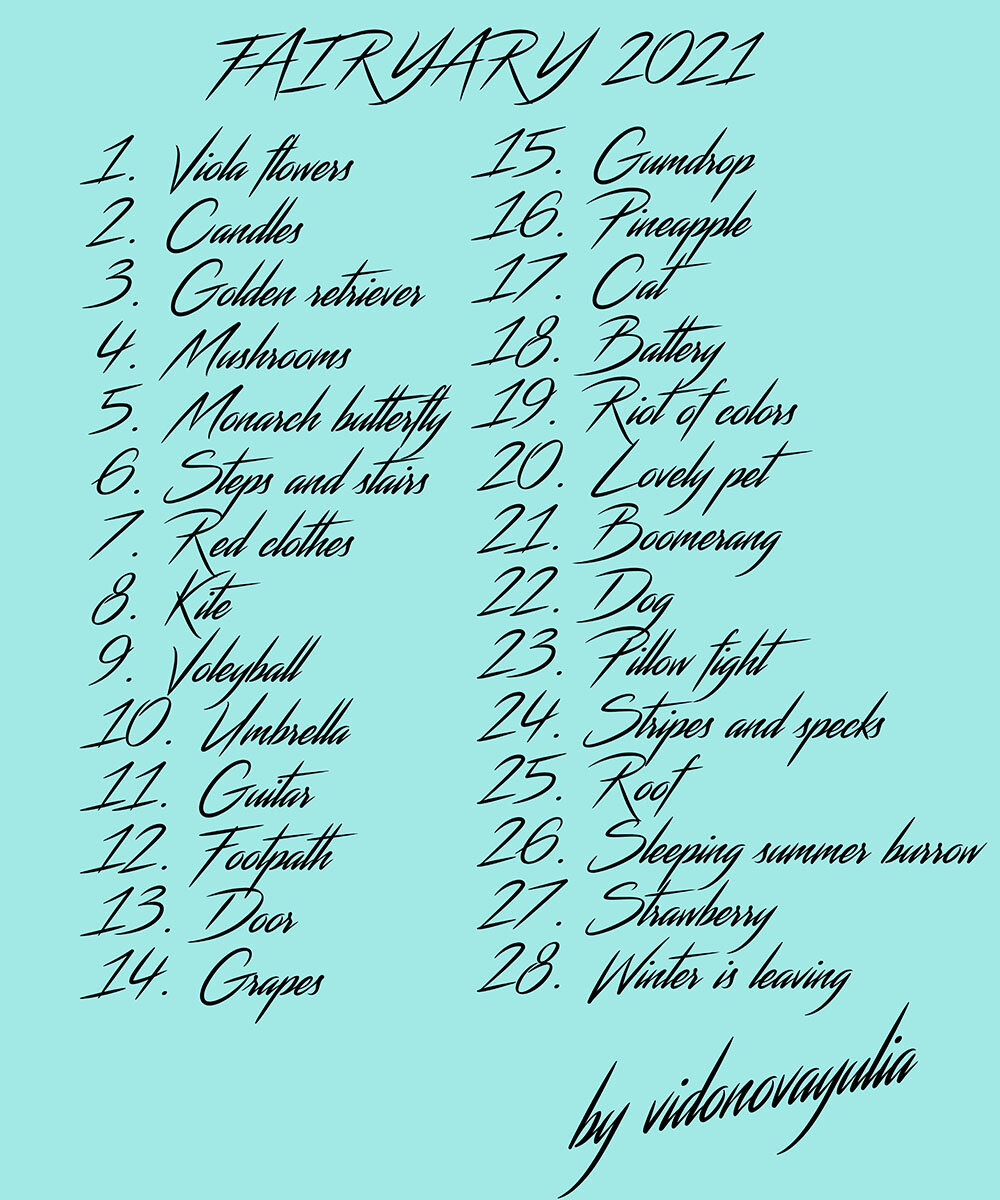 FAIRYARY 2021
1. Viola flowers
2. Candles
3. Golden retriever
4. Mushrooms
5. Monarch butterfly
6. Steps and stairs
7. Red clothes
8. Kite
9. Voleyball
10. Umbrella
11. Guitar
12. Footpath
13. Door
14. Grapes
15. Gumdrop
16. Pineapple
17. Cat
18. Battery
19. Riot of colors
20. Lovely pet
21. Boomerang
22. Dog
23. Pillow fight
24. Stripes and specks
25. Roof
26. Sleeping summer burrow
27. Strawberry
28. Winter is leaving
by vidonovayulia